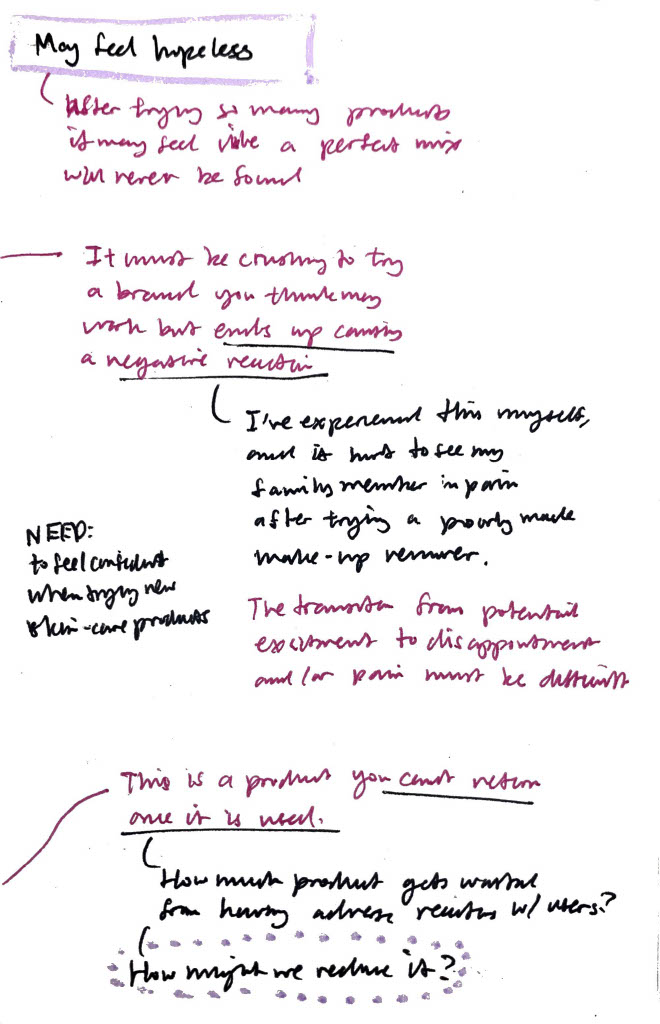 May feel hopeless
After trying so many products
it may feel like a perfect mix
will never be found
It must be crushing to try
a brand you think may
work but ends up causing
a negative reaction
I've experienced this myself,
and it hurt to see my
family member in pain
after trying a poorly made
make-up remover.
NEED:
to feel confident
when trying new
skin-care products
The transition from potential
excitment to disappointment
and/or pain must be difficult
This is a product you can't return
once it is used.
How much product gets wasted
from having adverse reactions w/ users?
How might we reduce it?